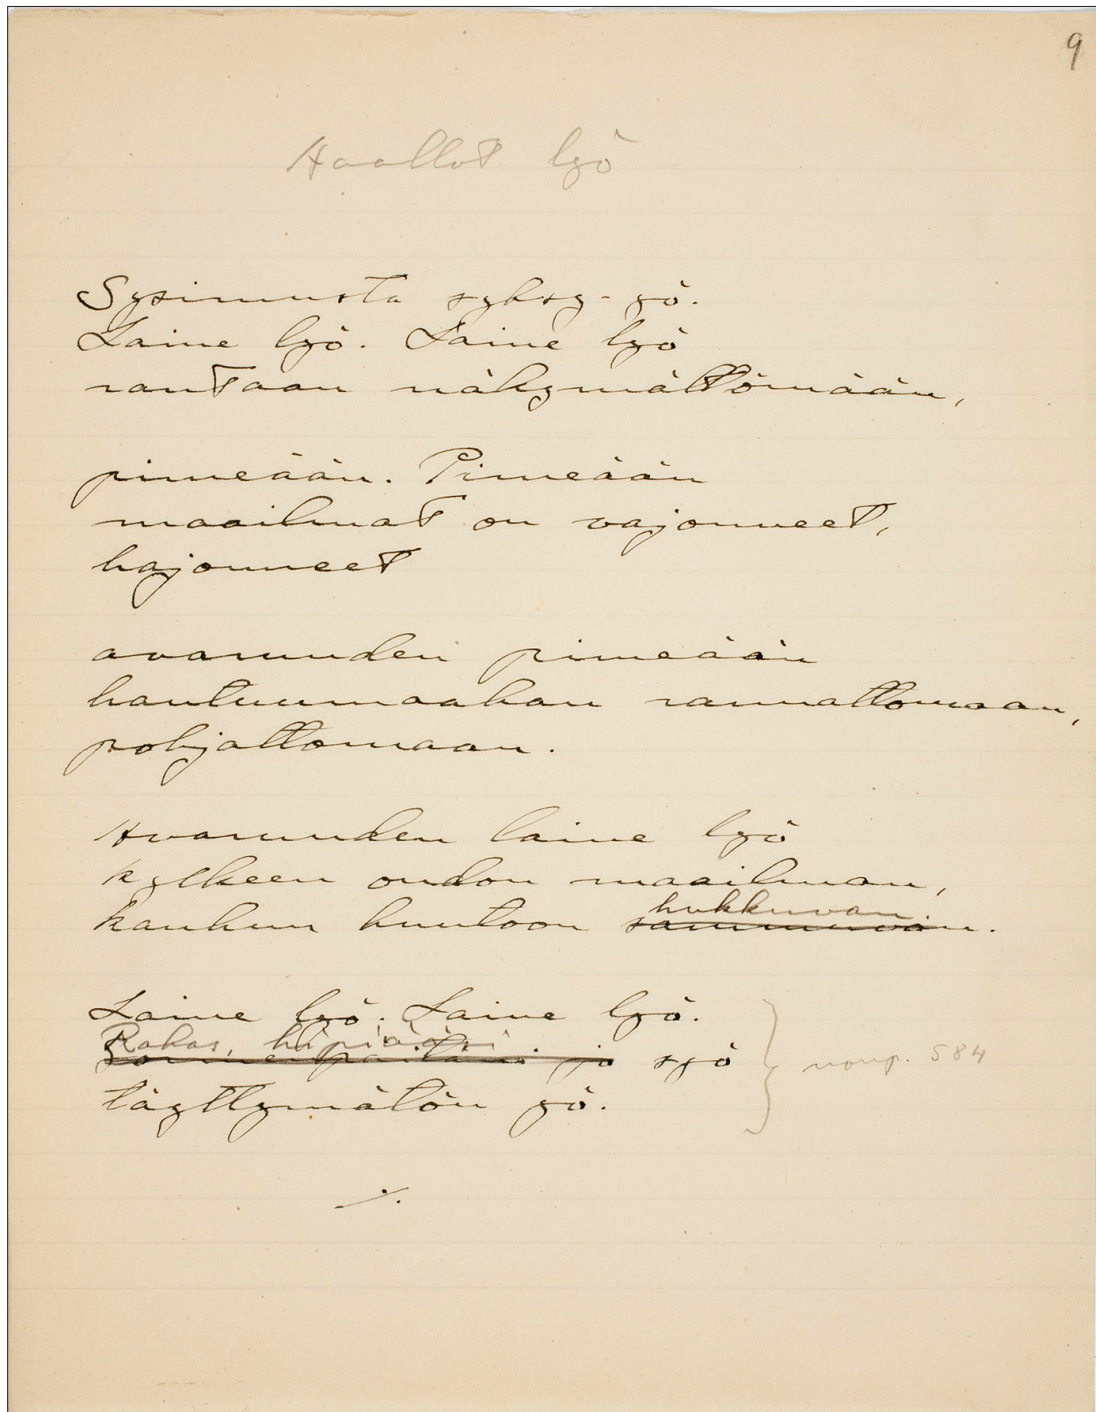 9
Aallot lyö
Sysimusta syksy-yö.
Laine lyö. Laine lyö
rantaan näkymättömään,
pimeään. Pimeään
maailmat on vajonneet,
hajonneet
avaruuden pimeään
hautuumaahan rannattomaan,
pohjattomaan.
Avaruuden laine lyö
kylkeen oudon maailman,
hukkuvan.
kauhun huutoon sammuvan.
Laine lyö. Laine lyö.
Rakas,
jo syö
täyttymätön yö.
584